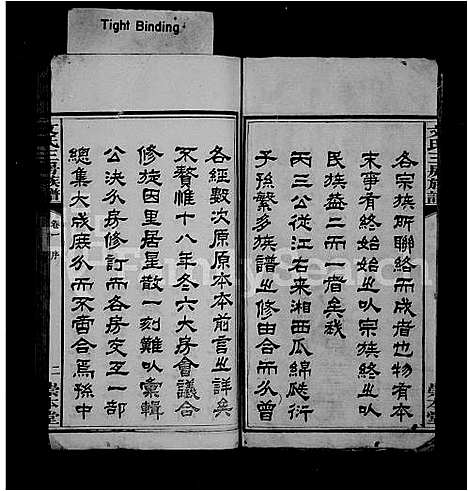 Tight Binding
文氏三房族譜
崇本堂
各宗族所聯絡而成者也物有本
末事有終始始之以宗族終之以
民族益二而一者矣我
丙三公從江右來湘西瓜綿瓞衍
子孫繁多族譜之修由合而分曾
各經數次原原本本前言之詳矣
不贅惟十八年冬六大房會議合
修嗣因里居星散一刻難以彙輯
公決分房修訂而各房交正一部
總集大成庶分而不啻合焉孫中
文氏三房族譜
卷一 序
二
崇本堂
FamilySearch